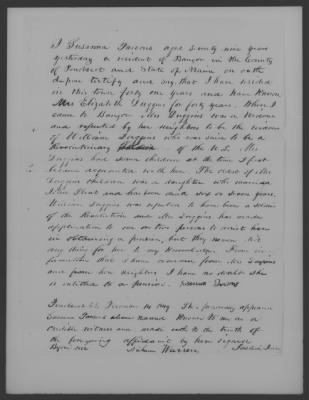 I Susanna Parsons aged seventy nine years
yesterday a resident of Bangor in the County
of Penobscot and State of Maine on oath
depose testify and say, that I have resided
in this town forty one years and have known
Mrs Elizabeth Duggins for forty years. When I
came to Bangor Mrs Duggins was a widow
and reputed by her neighbors to be the widow
of William Duggins who was said to be a
Revolutionary soldier of the U.S. Mrs
Duggins had seven children at the time I first
became acquainted with her. The oldest of Mrs
Duggins children was a daughter who married
and has been dead six or seven years,
William Duggins was reputed to have been a soldier
of the Revolution and Mrs Duggins has made
application to one or two persons to assist her
in obtaining a pension, but they never did
any thing for her to my knowledge. From in-
formation that I have received from Mrs Duggins
and from her neighbors I have no doubt she
is entitled to a pension. Susanna Parsons
Penobscot ss, December 14 The foregoing
Susanna Parsons above named known to me as a
credible witness and made oath to the truth of
the foregoing affidavit by her signed
Before me Warren Justice Peace